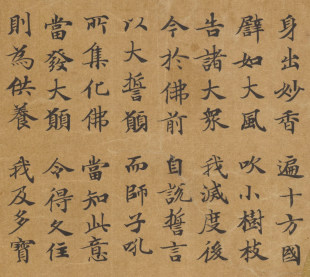 身出妙香　遍十方國
譬如大風　吹小樹枝
告諸大衆　我滅度後
今於佛前　自說誓言
以大誓願　而師子吼
所集化佛　當知此意
當發大願　令得久住
則為供養　我及多寶